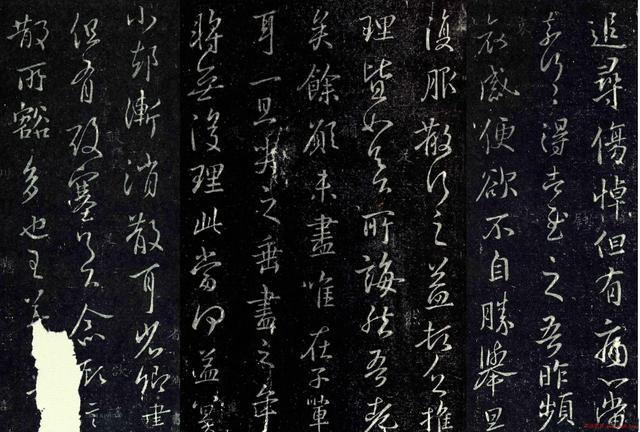 追尋傷悼但有痛心當
奈何々得告慰之吾昨頻
哀感便欲不自勝舉旦
復服散行之益頓乏推
理皆如足下所誨然吾老
矣餘願未盡唯在子輩
耳一旦哭之垂盡之年
將無復理此當何益冀
小却漸消散耳省卿書
但有酸塞足下念故言
散所豁多也王羲